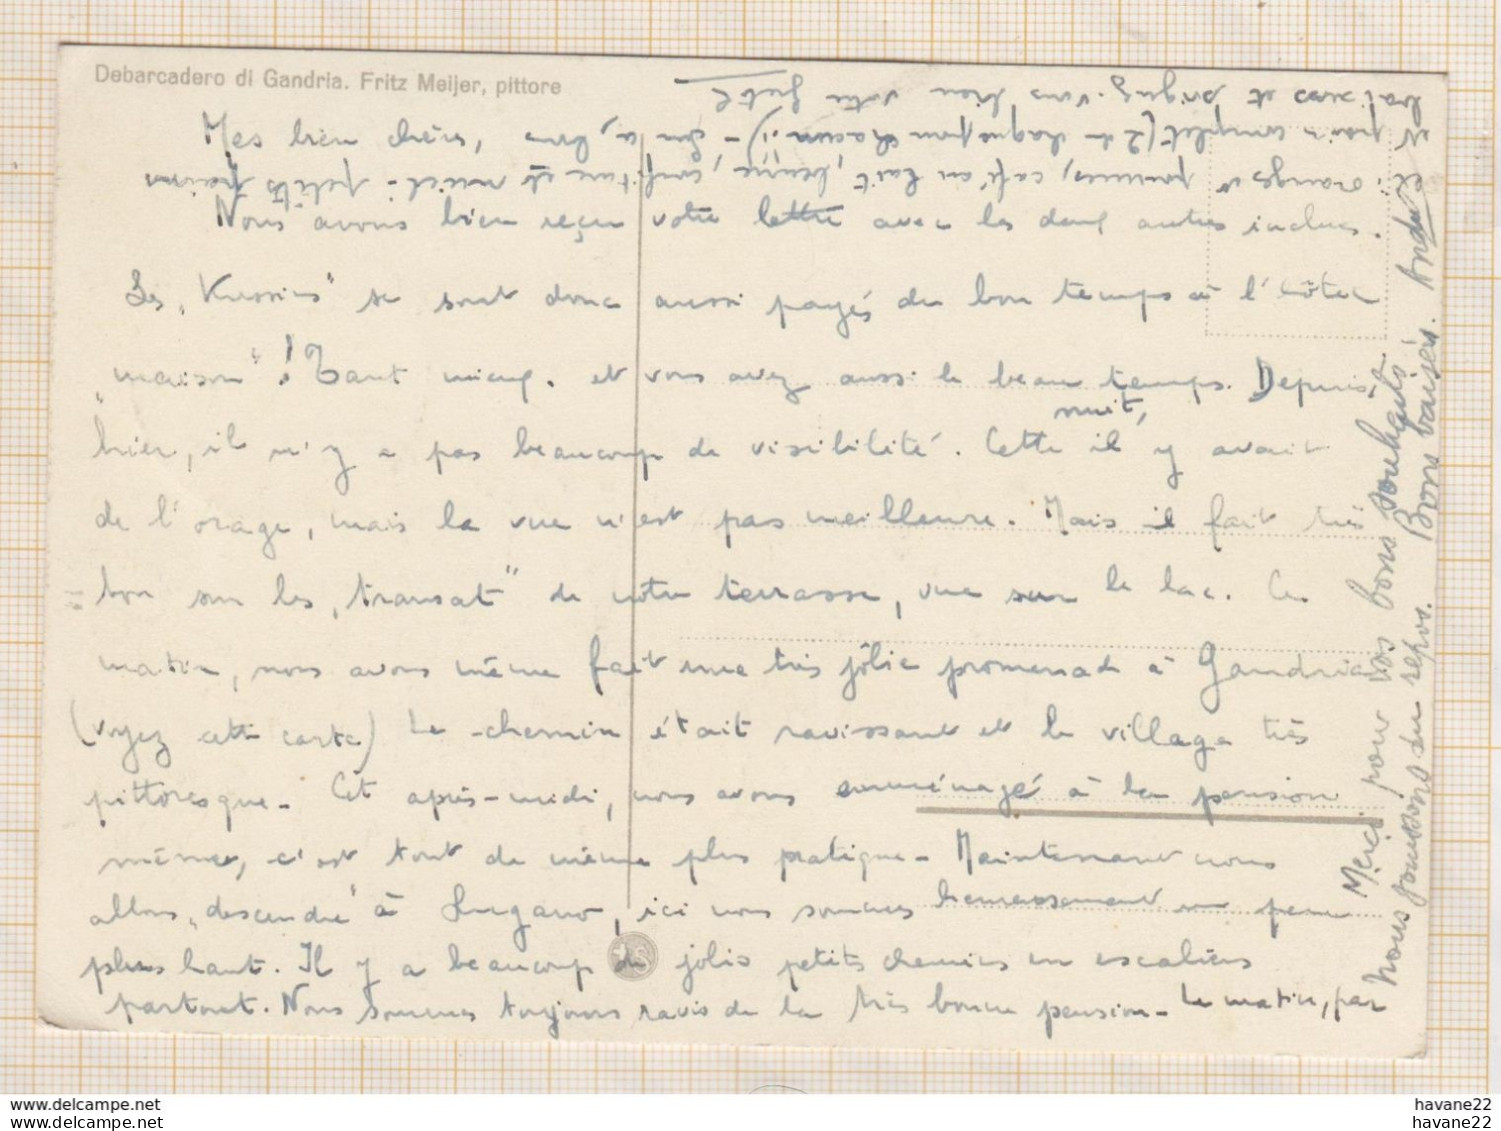 Debarcadero di Gandria. Fritz Meijer, pittore
Mes bien chers,
Nous avons bien reçu votre lettre avec les deux autres inclues.
Les „Kussins" se sont donc aussi payés du bon temps à l'hôtel
„maison"! Tant mieux. et vous avez aussi le beau temps. Depuis
hier, il n'y a pas beaucoup de visibilité. Cette nuit, il y avait
de l'orage, mais la vue n'est pas meilleure. Mais il fait très
bon sur les „transat" de notre terrasse, vue sur le lac. Ce
matin, nous avons même fait une très jolie promenade à Gandria
(voyez cette carte) Le chemin était ravissant et le village très
pittoresque - Cet après-midi, nous avons emménagé à la pension
même, c'est tout de même plus pratique - Maintenant nous
allons „descendre" à Lugano, ici nous sommes heureusement un peu
plus haut. Il y a beaucoup de jolis petits chemins en escaliers
partout. Nous sommes toujours ravis de la très bonne pension - Le matin, par
ex: oranges et pommes, café au lait, beurre, confiture et miel - petits pains
et pain complet (2 de chaque pour chacun!) -
baisers et soignez-vous bien
Merci pour vos bons souhaits
Nous jouissons du repos. Bons baisers. André
havane22
havane22
havane22
havane22